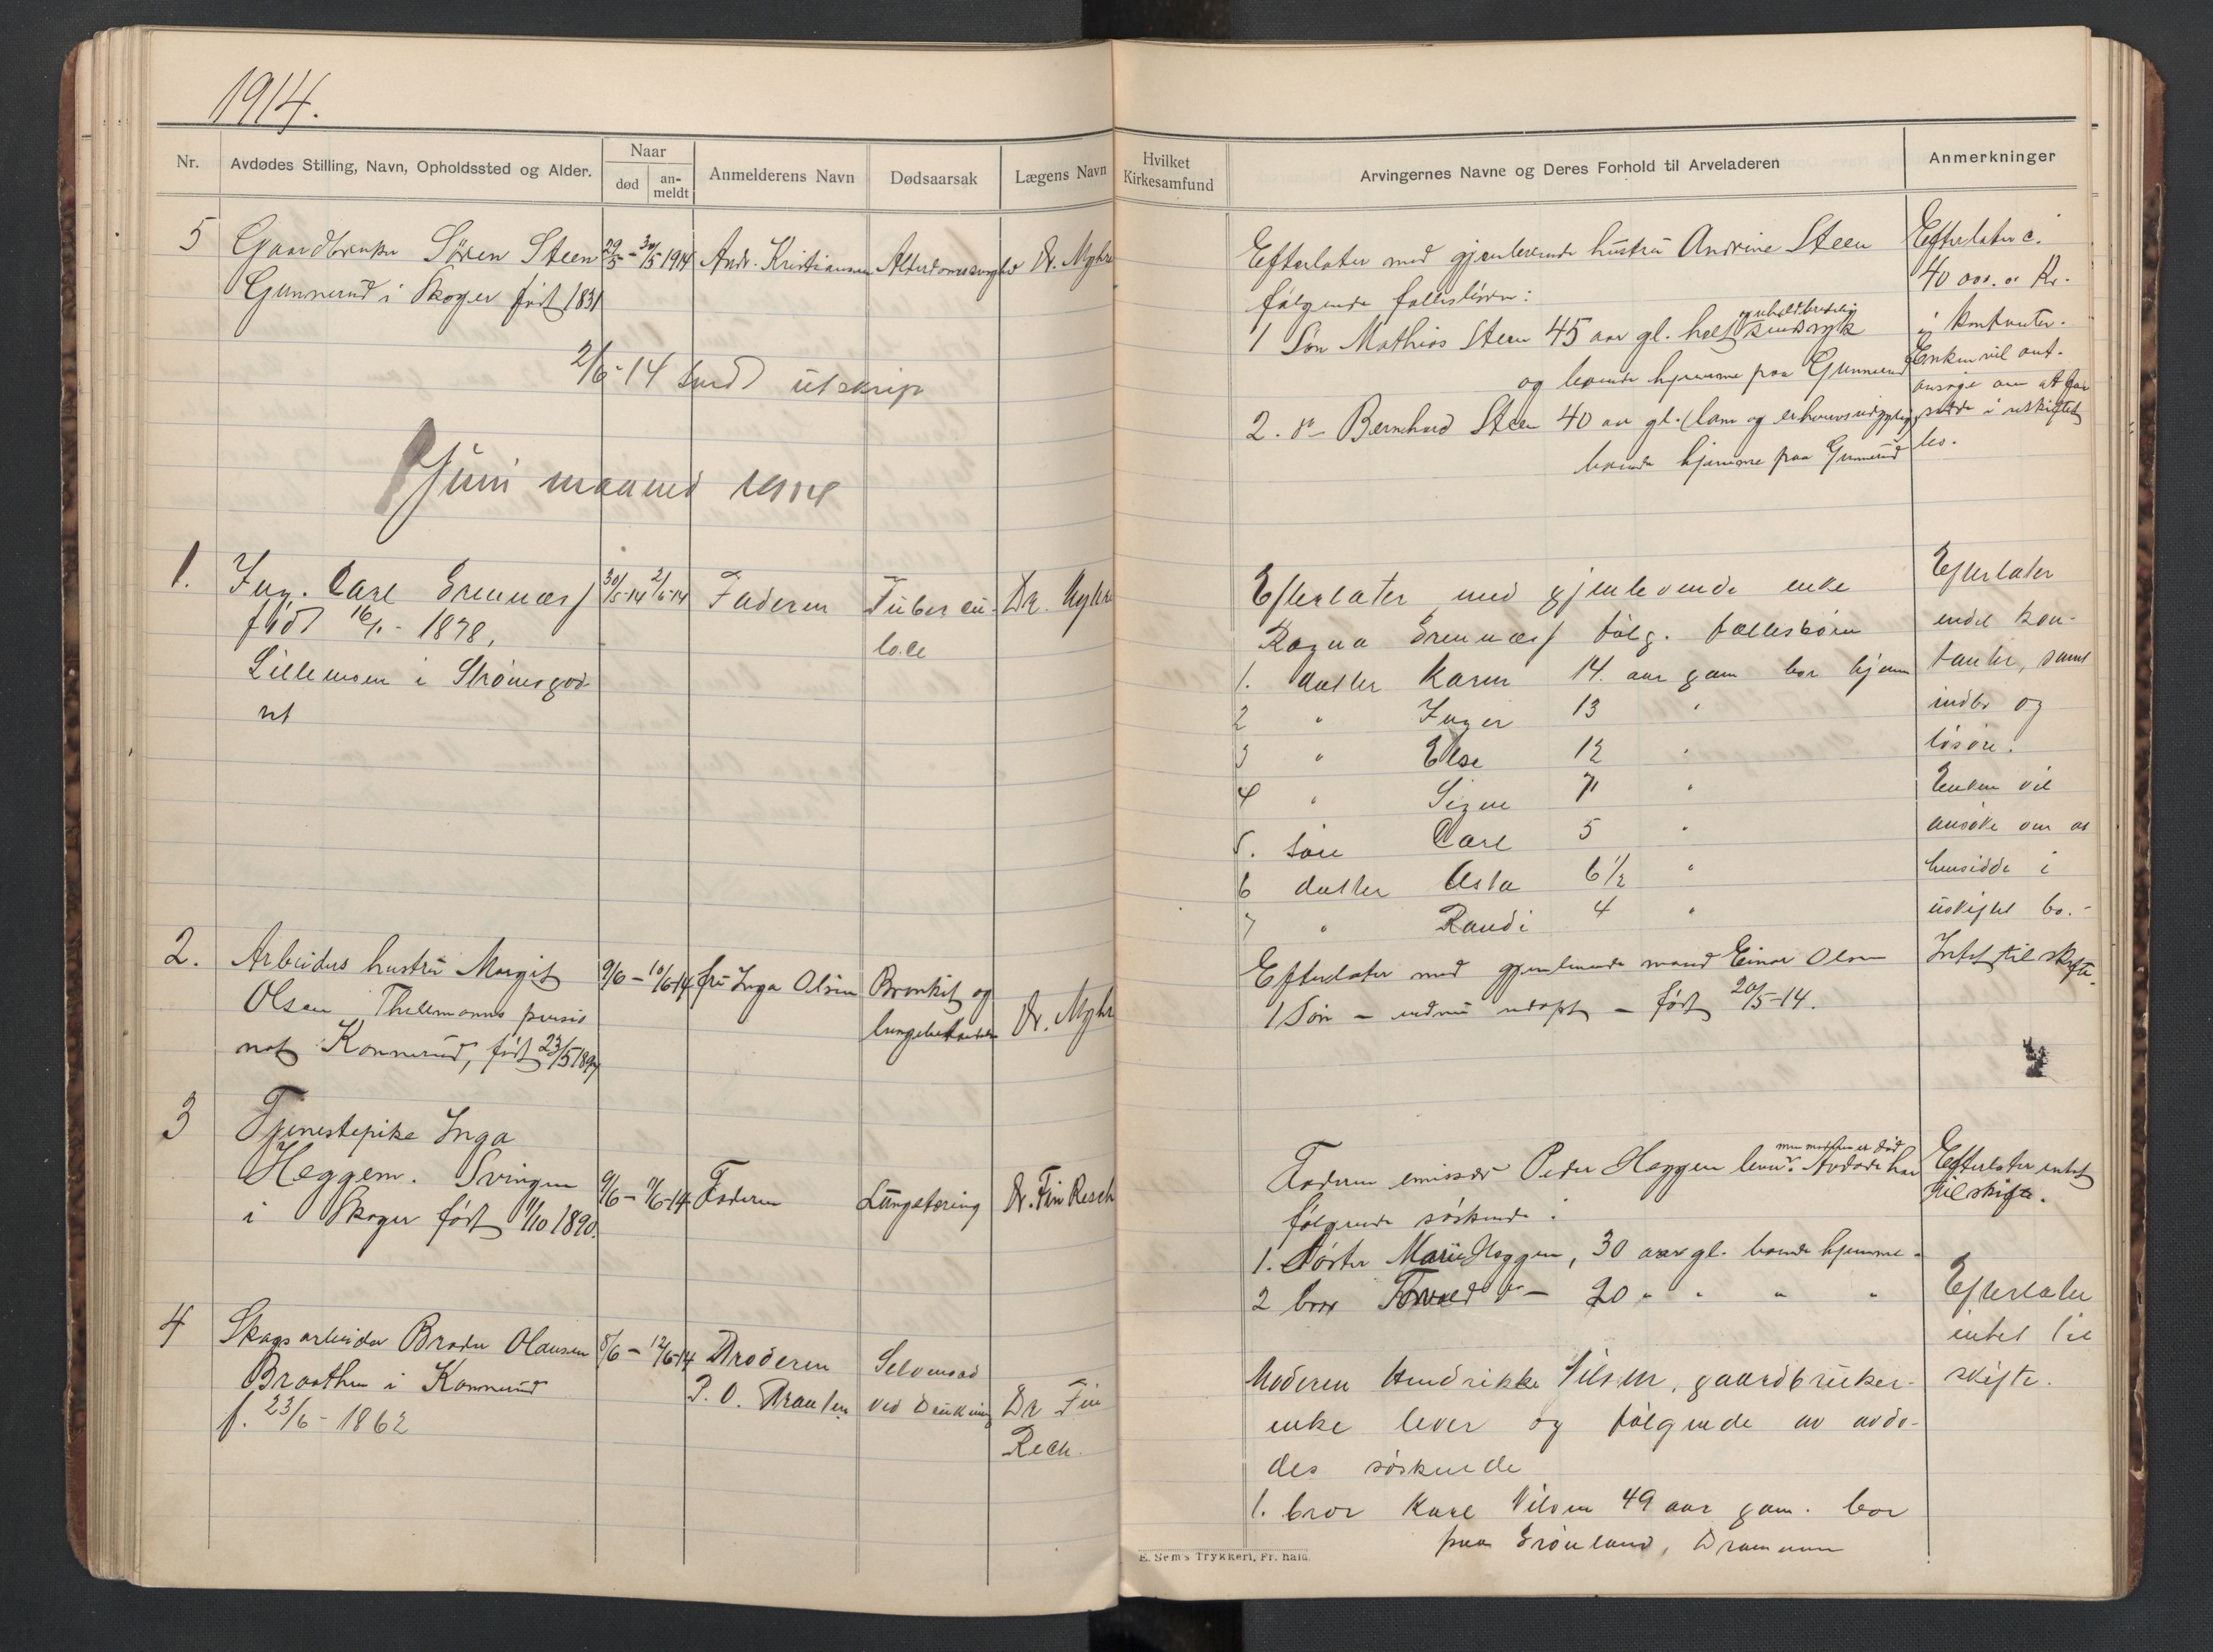 1914.
Nr.
Avdødes Stilling, Navn, Opholdssted og Alder.
Naar
død
an-
meldt
Anmelderens Navn
Dødsaarsak
Lægens Navn
Hvilket
Kirkesamfund
Arvingernes Navne og Deres Forhold til Arveladeren
Anmerkninger
5 Gaardbruker Sören Steen 29/5 - 30/5 1914 Andr. Kristiansen Alderdomssvaghed Dr. Myhre
Gunnerud i Skoger født 1831
2/6-14 Sendt utskrip
Efterlater med gjenlevende hustru Andrine Steen
følgende fællesbörn:
og uheldbredelig
1 Sön Mathias Steen 45 aar gl. helt sindssyk
og boende hjemme paa Gunnerud
2. do Bernhard Steen 40 aar gl. (lam og erhvervsudygtig)
boende hjemme paa Gunnerud
Efterlater c.
40 000.00 Kr.
i kontanter.
Enken vil ant.
ansøge om at faa
sidde i uskiftet
bo.
Juni maaned 1914
1. Ing. Carl Grennæss 30/5-14 2/6-14 Faderen Tubercu- Dr. Myhre
født 16/1 - 1878, lose
Lillemoen i Strømsgod-
set
Efterlater med gjenlevende enke
Ragna Grennæss følg. fællesbörn
1. datter Karin 14. aar gam bor hjem
2 " Inger 13 "
3 " Else 12 "
4 " Signe 7 "
5. sön Carl 5 "
6 datter Asta 6 1/2 "
7 " Randi 4 "
Efterlater
endel kon-
tanter, samt
indbo og
lösöre.
Enken vil
ansöke om at
hensidde i
uskiftet bo.-
2. Arbeiders hustru Margit 9/6 - 10/6-14 fru Inga Olsen Bronkit og
Olsen Thellmanns pensio lungebetændelse Dr. Myhre
nat Konnerud, født 23/5 1894
Efterlater med gjenlevende mand Einar Olsen
1 Sön - endnu udøpt - født 20/5-14.
Intet til skifte.
3 Tjenestepike Inga
Heggem. Svingen 9/6 - 11/6-14 Faderen Lungetæring Dr. Fin Resch
i Skoger født 11/10 1890.
men moderen er død
Faderen emissær Peder Heggen lever. Avdøde har
følgende söskende:
1. Söster Marie Heggen, 30 aar gl. boende hjemme.
2 bror Torvald do - 20 " " " "
Efterlater intet
til skifte.
4 Skogsarbeider Brede Olausen 8/6 - 12/6-14 Broderen Selvmord
Braathen i Konnerud P. O. Braaten ved Drukning Dr Fin
f. 23/6 - 1862 Rech.
Moderen Hendrikke Nilsen, gaardbruker-
enke lever og følgende av avdö-
des söskende
1. bror Karl Nilsen 49 aar gam. bor
paa Grönland, Drammen
Efterlater
intet til
skifte.
E. Sem's Trykkeri, Fr. hald.